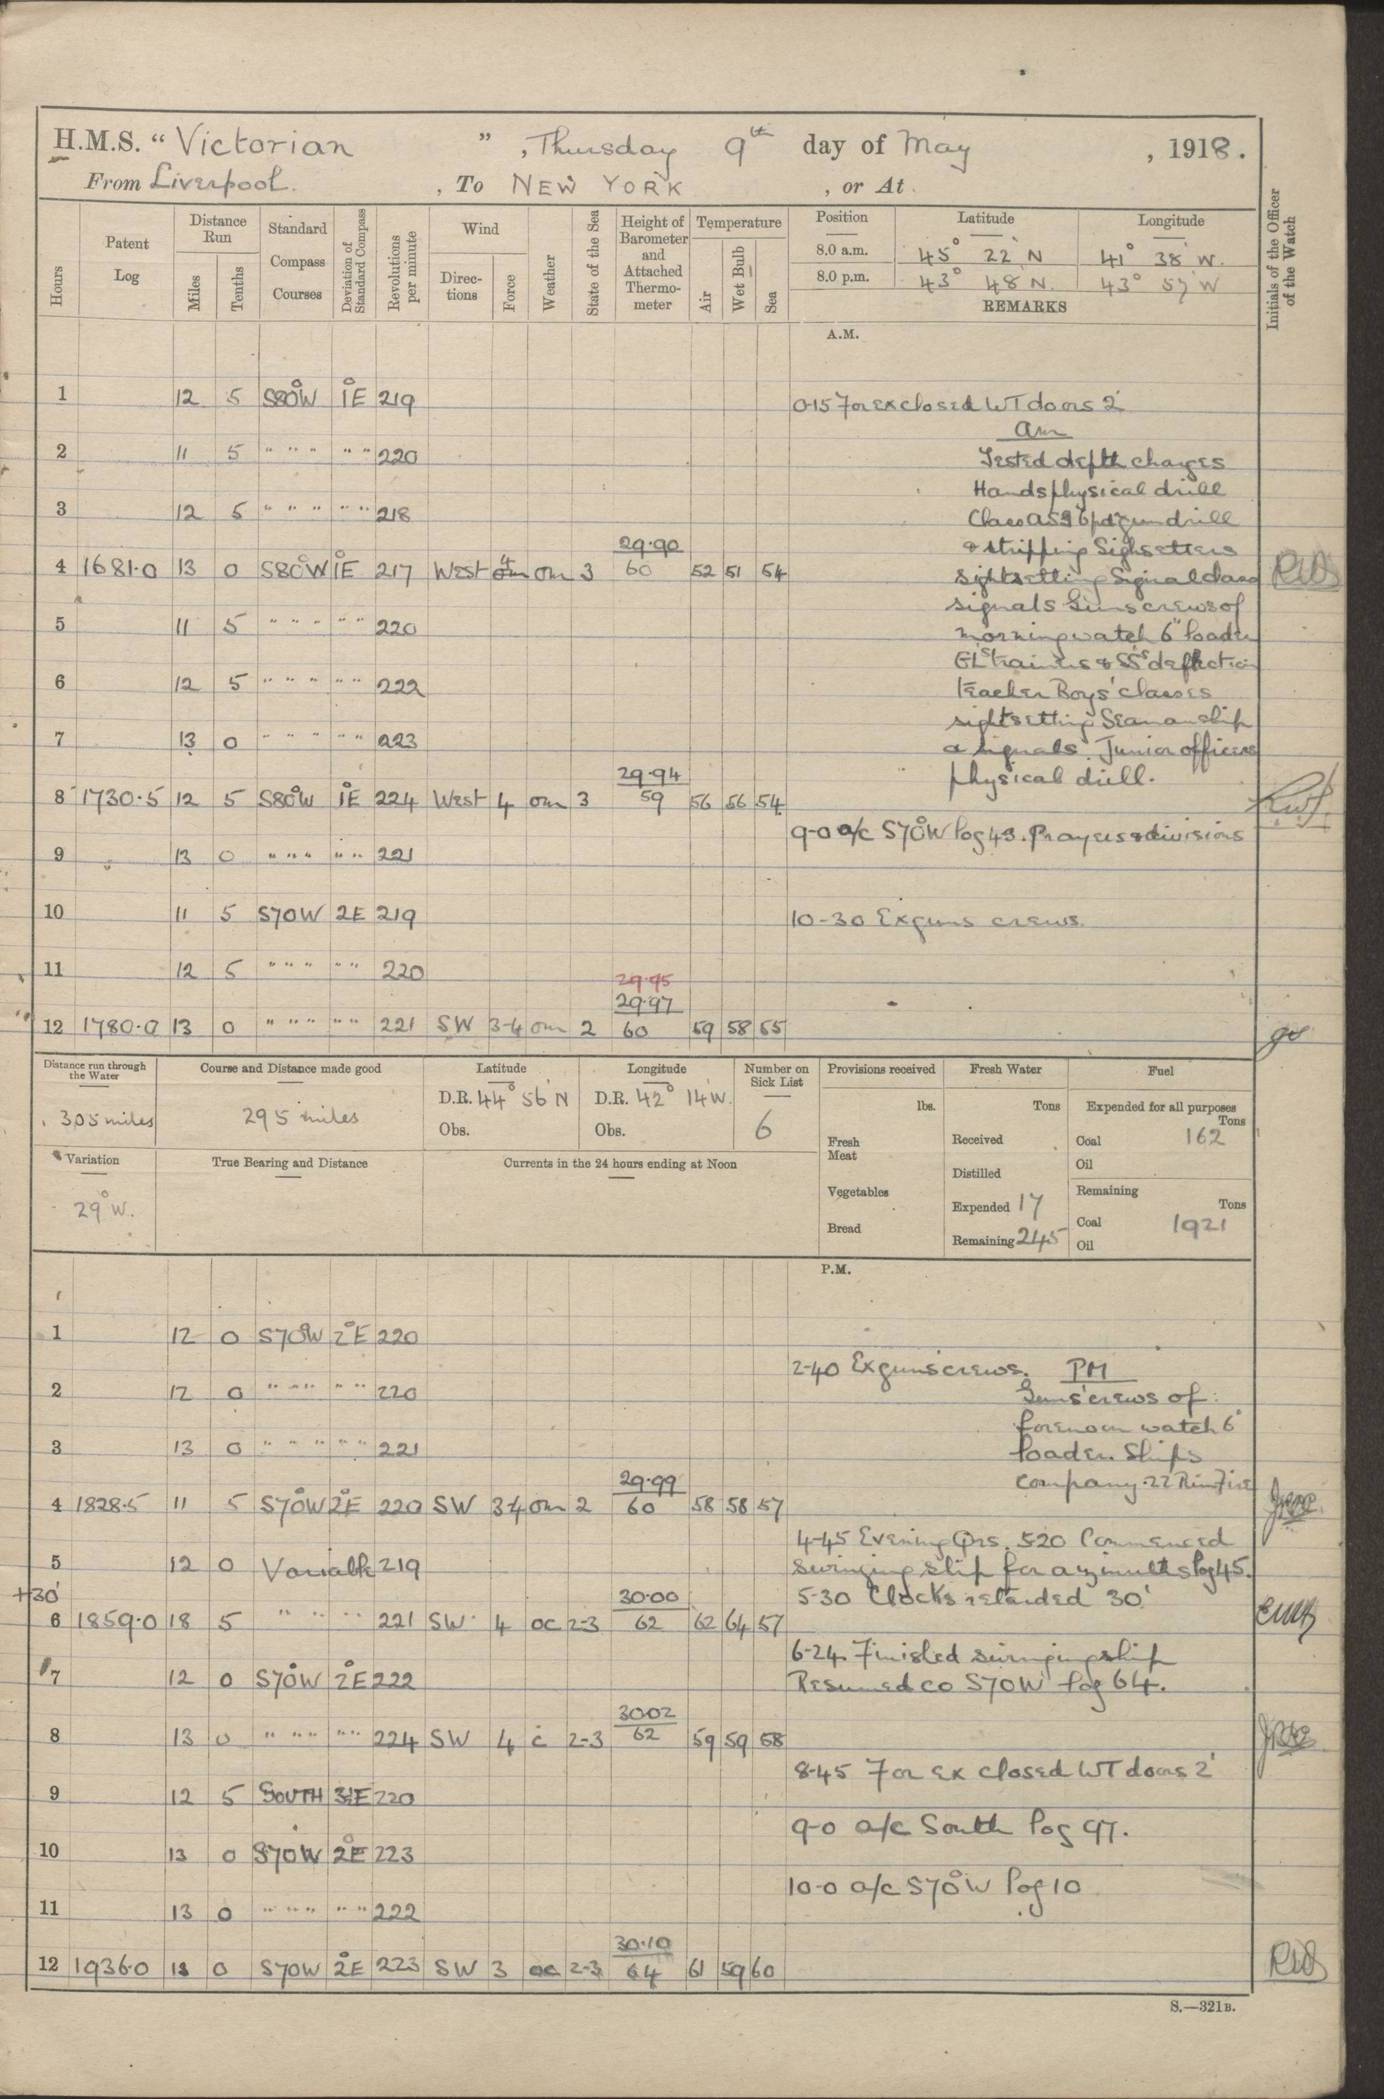 H.M.S. " Victorian ", Thursday 9th day of May, 1918.
From Liverpool. , To NEW YORK , or At
Hours
Patent Log
Distance Run
Miles
Tenths
Standard Compass Courses
Deviation of Standard Compass
Revolutions per minute
Wind
Directions
Force
Weather
State of the Sea
Height of Barometer and Attached Thermometer
Temperature
Air
Wet Bulb
Sea
Position Latitude Longitude
8.0 a.m. 45° 22' N 41° 38' W.
8.0 p.m. 43° 48 N. 43° 57' W
REMARKS
Initials of the Officer of the Watch
A.M.
1 12 5 S80°W 1°E 219 0-15 For ex closed WT doors 2'
am
2 11 5 " " " " " 220 Tested depth charges
Hands physical drill
3 12 5 " " " " " 218 Class 6 pdr gun drill
29.90 & stripping Sighsetters
4 1681.0 13 0 S80°W 1°E 217 West 4 om 3 60 52 51 54 sightsetting Signal class
signals Guns crews of
5 11 5 " " " " " 220 morning watch 6" loader
GLs trainers & SSs deflection
6 12 5 " " " " " 222 teacher Boys' classes
sightsetting Seamanship
7 13 0 " " " " " 223 & signals. Junior officers
29.94 physical drill.
8 1730.5 12 5 S80°W 1°E 224 West 4 om 3 59 56 56 54
9-0 a/c S70°W log 43. Prayers & divisions
9 13 0 " " " " " 221
10 11 5 S70W 2E 219 10-30 Ex guns crews.
11 12 5 " " " " " 220
29.95
29.97
12 1780.0 13 0 " " " " " 221 SW 3-4 om 2 60 59 58 55
Distance run through the Water
305 miles
Course and Distance made good
295 miles
Latitude
D.R. 44° 56' N
Obs.
Longitude
D.R. 42° 14' W.
Obs.
Number on Sick List
6
Provisions received
lbs.
Fresh Meat
Vegetables
Bread
Fresh Water
Tons
Received
Distilled
Expended 17
Remaining 245
Fuel
Expended for all purposes
Tons
Coal 162
Oil
Remaining
Tons
Coal 1921
Oil
Variation
29° W.
True Bearing and Distance
Currents in the 24 hours ending at Noon
P.M.
1 12 0 S70°W 2°E 220
2-40 Ex guns crews. PM
2 12 0 " " " " " 220 Guns crews of
forenoon watch 6"
3 13 0 " " " " " 221 loader. Ships
29.99 company .22 Rim Fire
4 1828.5 11 5 S70°W 2°E 220 SW 3-4 om 2 60 58 58 57
4-45 Evening Qrs. 5-20 Commenced
5 12 0 Variable 219 swinging ship for azimuths log 45.
+30' 30.00 5-30 Clocks retarded 30'
6 1859.0 18 5 " " " 221 SW 4 oc 2-3 62 62 64 57
6-24 Finished swinging ship
7 12 0 S70°W 2°E 222 Resumed co S70W log 64.
30.02
8 13 0 " " " " " 224 SW 4 c 2-3 62 59 59 58
8-45 For ex closed WT doors 2'
9 12 5 SOUTH 3½E 220
9-0 a/c South log 97.
10 13 0 S70W 2°E 223
10-0 a/c S70°W log 10
11 13 0 " " " " " 222
30.10
12 1936.0 13 0 S70W 2°E 223 SW 3 oc 2-3 64 61 59 60
S.—321B.